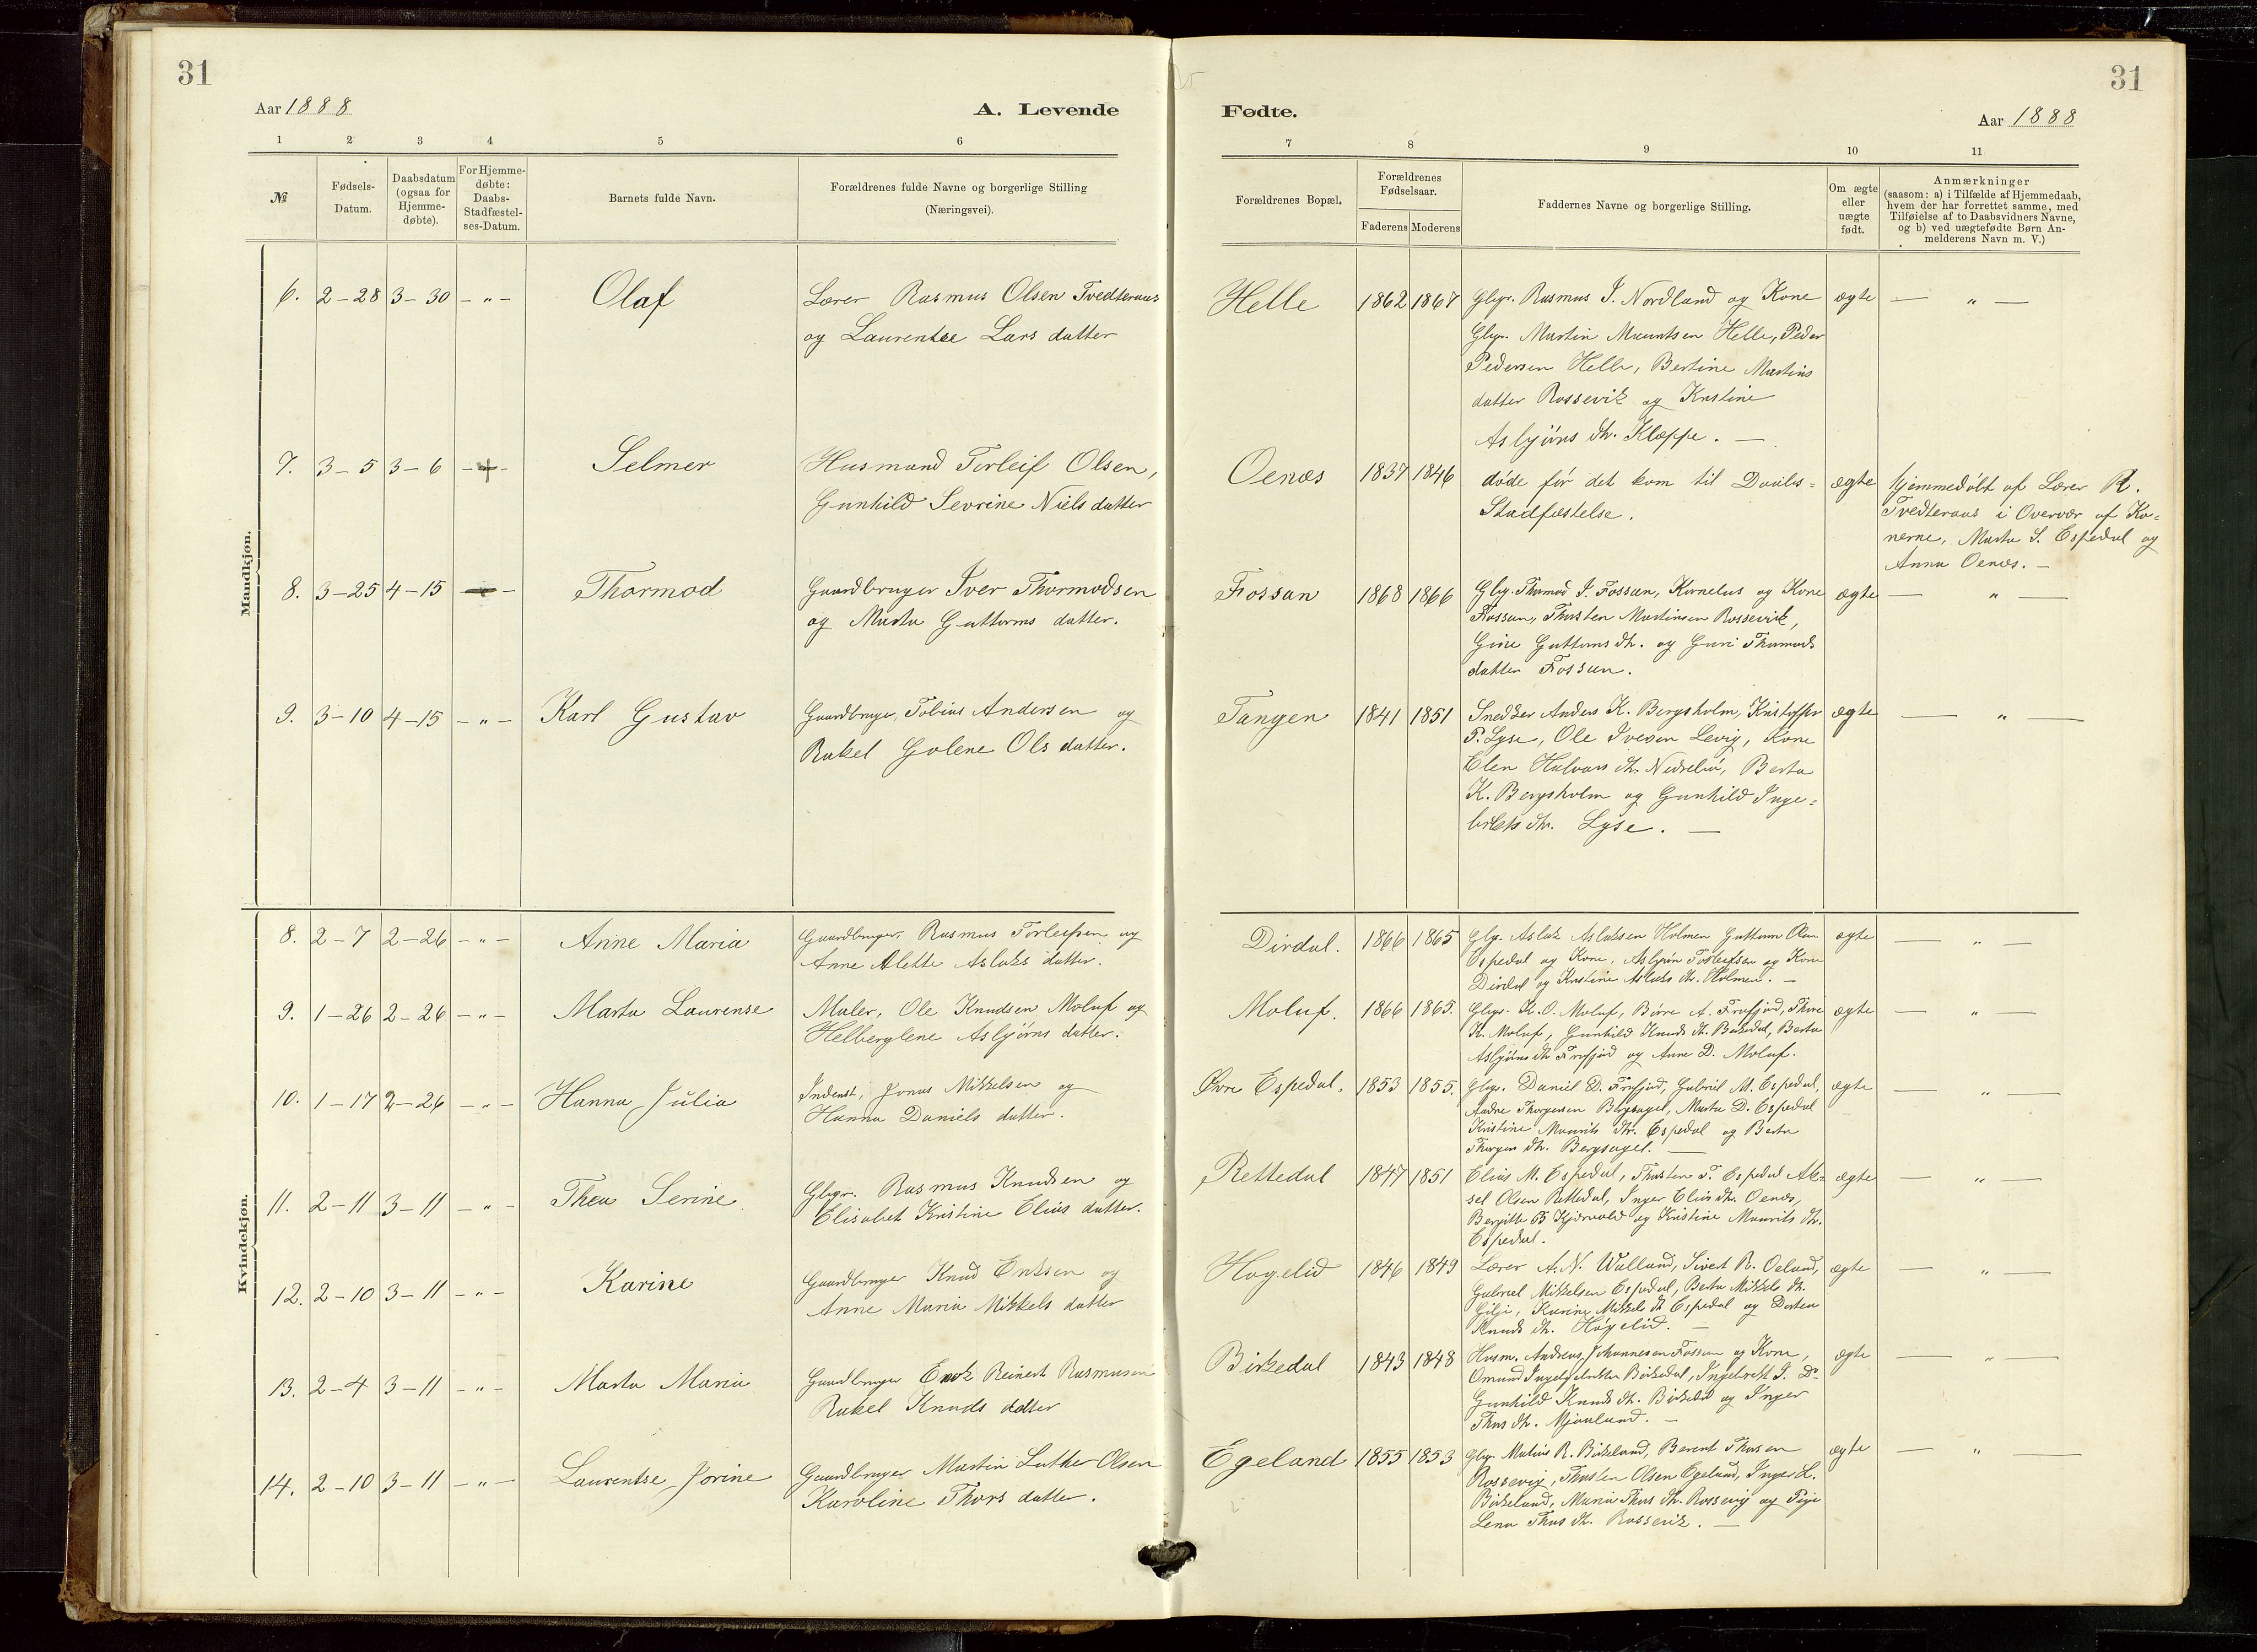 31
31
Aar 1888
A. Levende
Fødte.
Aar 1888
1 2 3 4 5 6
7 8 9 10 11
№
Fødsels-Datum.
Daabsdatum (ogsaa for Hjemme-døbte).
For Hjemme-døbte: Daabs-Stadfæstel-ses-Datum.
Barnets fulde Navn.
Forældrenes fulde Navne og borgerlige Stilling
(Næringsvei).
Forældrenes Bopæl.
Forældrenes Fødselsaar.
Faderens Moderens
Faddernes Navne og borgerlige Stilling.
Om ægte eller uægte født.
Anmærkninger
(saasom: a) i Tilfælde af Hjemmedaab,
hvem der har forrettet samme, med
Tilføielse af to Daabsvidners Navne,
og b) ved uægtefødte Børn An-
melderens Navn m. V.)
Mandkjøn.
6. 2-28 3-30 -"- Olaf
Lærer Rasmus Olsen Tvedteraas
og Laurentse Lars datter
Helle 1862 1867
Gbgr. Rasmus I. Nordland og Kone
Gbgr. Martin Mauritsen Helle, Peder
Pedersen Helle, Bertine Martins
datter Rossevik og Kristine
Asbjörns dtr. Kleppe. —
ægte — " —
7. 3-5 3-6 -+- Selmer
Husmand Torleif Olsen,
Gunhild Sevrine Niels datter
Oenæs 1837 1846
döde för det kom til Daabs=
Stadfæstelse.
ægte
hjemmedöbt af Lærer R.
Tvedteraas i Overvær af Ko=
nerne, Marta S. Espedal og
Anna Oenæs. —
8. 3-25 4-15 Thormod
Gaardbruger Iver Thormodsen
og Marta Guttorms datter.
Fossan 1868 1866
Gbgr. Thormod I. Fossan, Kornelius og Kone
Fossan, Thorsten Martinsen Rossevik,
Gine Guttorms dtr. og Guri Thormods
datter Fossan.
ægte — " —
9. 3-10 4-15 -"- Karl Gustav
Gaardbruger, Tobias Andersen og
Rakel Golene Ols datter.
Tangen 1841 1851
Snedker Anders K. Bergsholm, Kristoffer
P. Lyse, Ole Iversen Levig, Kone
Elen Halvors dtr. Nedrelid, Berta
K. Bergsholm og Gunhild Inge=
brets dtr. Lyse. —
ægte — " —
Kvindekjøn.
8. 2-7 2-26 -"- Anne Maria
Gaardbruger, Rasmus Torleifsen og
Anne Alette Aslaks datter.
Dirdal. 1866 1865
Gbgr. Aslak Aslaksen Holmen Guttorm Olsen
Espedal og Kone, Asbjörn Torleifsen og Kone
Dirdal og Kristine Aslaks dtr. Holmen. —
ægte — " —
9. 1-26 2-26 -"- Marta Laurense
Maler, Ole Knudsen Molaf og
Helberglene Asbjörns datter.
Molaf. 1866 1865.
Gbgr. K. O. Molaf, Börre A. Frafjord, Thore
K. Molaf, Gunhild Knuds dt. Birkedal, Berta
Asbjörns dtr. Frafjord og Anne D. Molaf.
ægte — " —
10. 1-17 2-26 -"- Hanna Julia
Inderst, Jonas Mikkelsen og
Hanna Daniels datter.
Øvre Espedal. 1853 1855.
Gbgr. Daniel D. Frafjord, Gabriel M. Espedal,
Andre Thorgersen Bergsagel, Marta D. Espedal
Kristine Maurits dtr. Espedal og Berta
Thorgers dtr. Bergsagel. —
ægte — " —
11. 2-11 3-11 -"- Thea Serine
Gbgr. Rasmus Knudsen og
Elisabet Kristine Elias datter.
Rettedal 1847 1851
Elias M. Espedal, Thorsten T. Espedal Ak=
sel Olsen Rettedal, Inger Elias dtr. Oenæs,
Bergitte B. Kjörvold og Kristine Maurits dtr.
Espedal.
ægte — " —
12. 2-10 3-11 -"- Karine
Gaardbruger Knud Eriksen og
Anne Maria Mikkels datter
Høgelid 1846 1849
Lærer A. N. Walland, Sivert R. Oeland,
Gabriel Mikkelsen Espedal, Berta Mikkels dt.
Gilje, Karine Mikkels dt Espedal og Dortea
Knuds dtr. Høgelid. —
ægte — " —
13. 2-4 3-11 -"- Marta Maria
Gaardbruger Enok Reinert Rasmusen
Rakel Knuds datter
Birkedal 1843 1848
Husm. Andreas Johannesen Fossan og Kone,
Omund Birkedal, Ingebrett I. Do
Gunhild Knuds dt. Birkedal og Inger
Thors dtr. Mjaaland. —
ægte — " —
14. 2-10 3-11 -"- Laurentse Jorine
Gaardbruger Martin Luther Olsen
Karoline Thors datter.
Egeland 1855 1853
Gbgr. Matias R. Birkeland, Berent Thorsen
Rossevig, Thorsten Olsen Egeland, Inger L.
Birkeland, Maria Thors dtr. Rossevig og
Lena Thors dt. Rossevik. —
ægte — " —